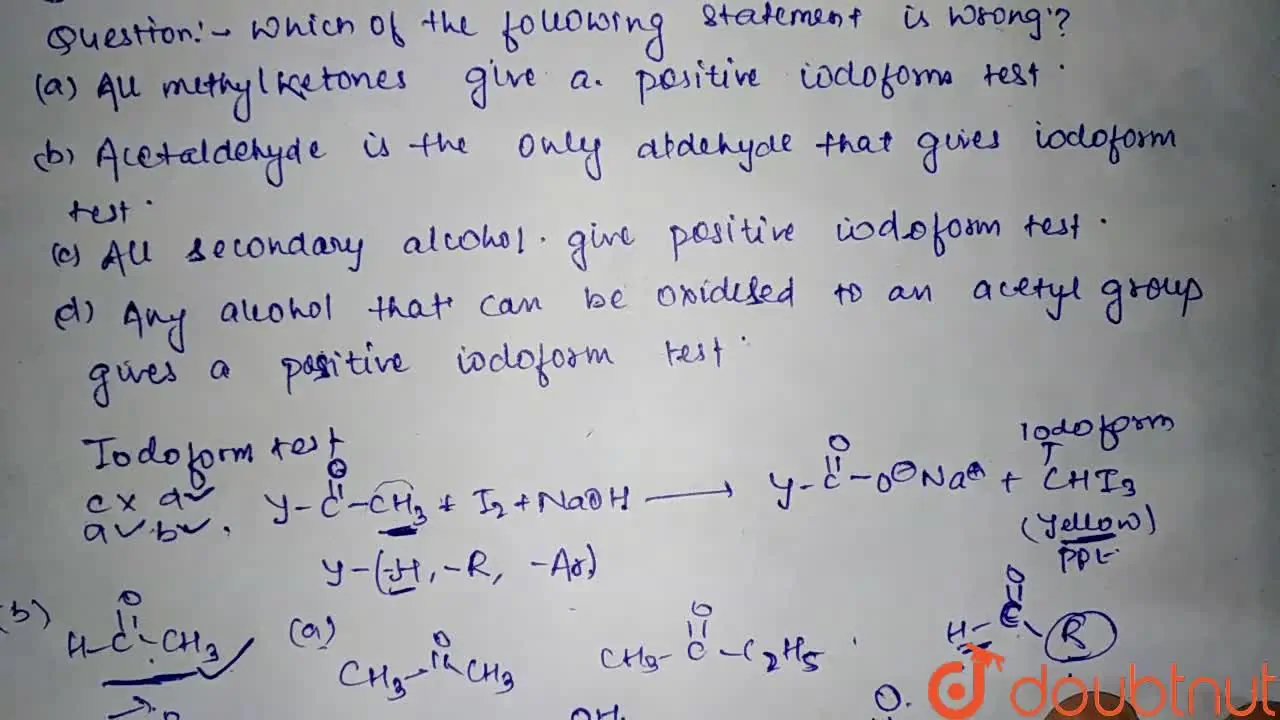 Question:- which of the following statement is wrong?
(a) All methyl ketones give a positive iodoform test.
(b) Acetaldehyde is the only aldehyde that gives iodoform
test.
(c) All secondary alcohol. give positive iodoform test.
(d) Any alcohol that can be oxidised to an acetyl group
gives a positive iodoform test.
Iodoform test
Iodoform
c× d✓
a✓ b✓,
O
Y-C-CH3 + I2 + NaOH → Y-C-O⊖Na⊕ + CHI3
O
(Yellow)
ppt.
Y-(-H, -R, -Ar)
(b) H-C-CH3
O
(a) CH3-C-CH3
O
CH3-C-C2H5
O
H-C-R
O
OH
O
doubtnut